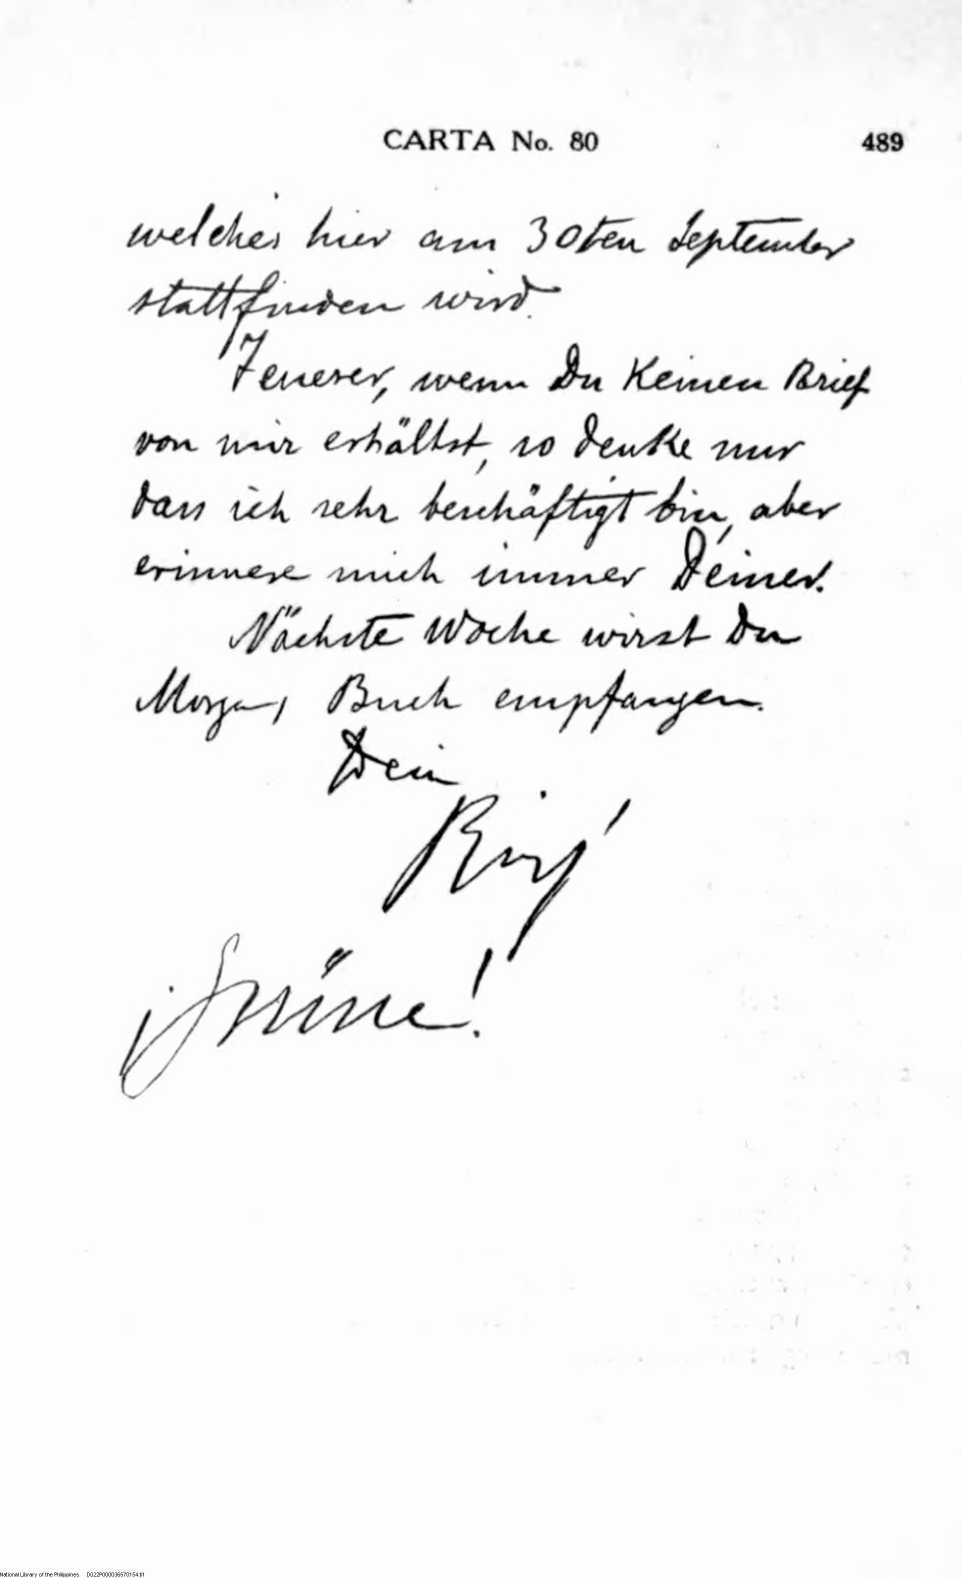 CARTA No. 80 489
welches hier am 30ten September
stattfinden wird.
Teuerer, wenn Du Keinen Brief
von mir erhältst, so denke nur
dass ich sehr beschäftigt bin, aber
erinnere mich immer Deiner.
Nächste Woche wirst Du
Morga, Buch empfangen.
Dein
Rizal
National Library of the Philippines